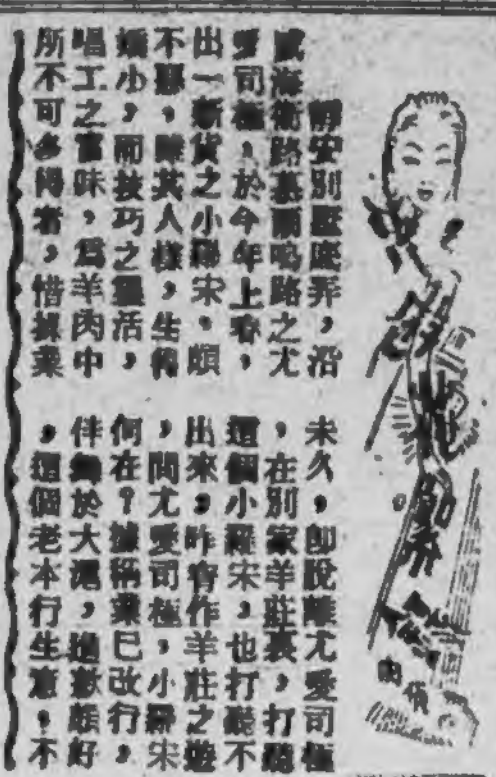 靜安別墅弄,沿
威海衛路慕爾鳴路之尤
愛司極,於今年上春,
出一新貨之小羅宋,頗
不惡,睇其人樣,生得
嬌小,而技巧之靈活,
唱工之富味,爲羊肉中
所不可多得者,惜操業
未久,卽脫離尤愛司極
,在別家羊莊裏,打聽
這個小羅宋,也打聽不
出來,昨宵作羊莊之遊
,問尤愛司極,小羅宋
何在?據稱業已改行,
伴舞於大滬,好
,這個老本行生意,不